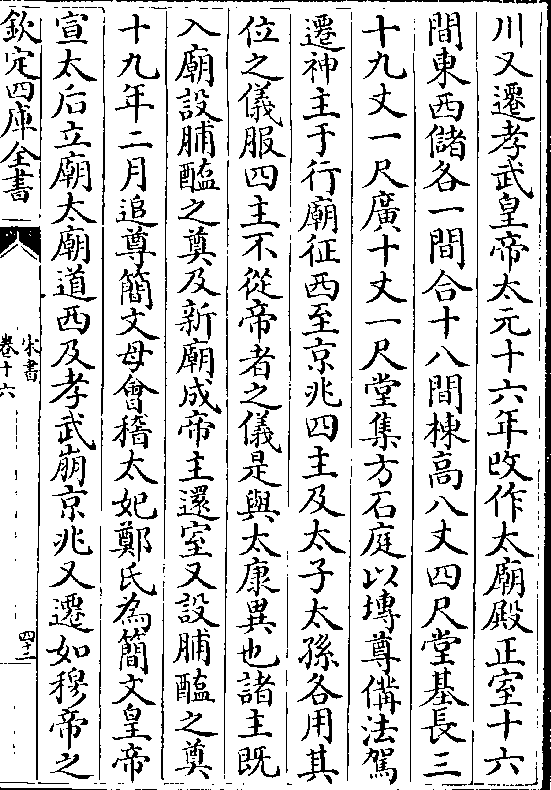 川又遷孝武皇帝太元十六年改作太廟殿正室十六
間東西儲各一間合十八間棟高八丈四尺堂基長三
十九丈一尺廣十丈一尺堂集方石庭以塼尊備法駕
遷神主于行廟征西至京兆四主及太子太孫各用其
位之儀服四主不從帝者之儀是與太康異也諸主既
入廟設脯醢之奠及新廟成帝主還室又設脯醢之奠
十九年二月追尊簡文母會稽太妃鄭氏為簡文皇帝
宣太后立廟太廟道西及孝武崩京兆又遷如穆帝之
欽定四庫全書
宋書
卷十六
四十二